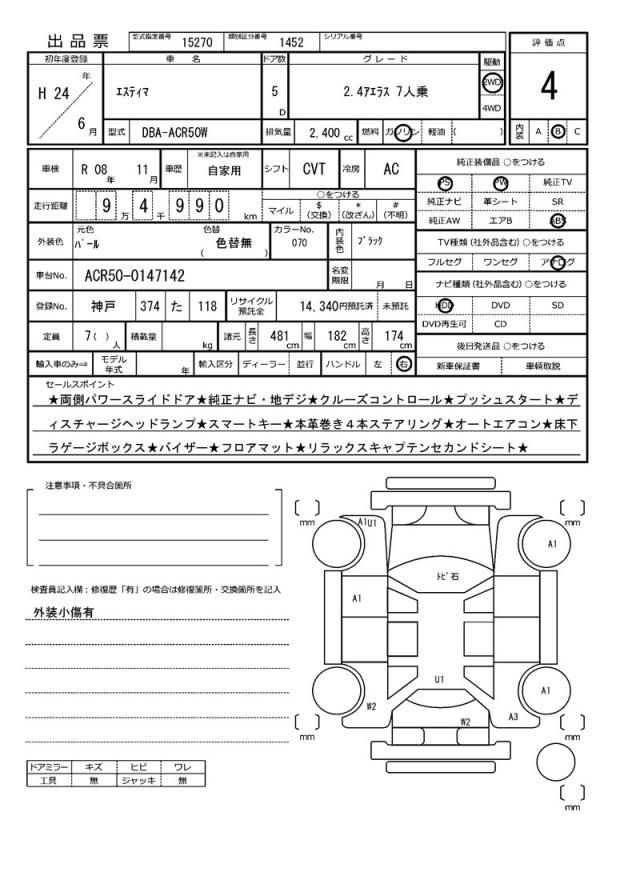 出品票 型式指定番号 15270 類別区分番号 1452 シリアル番号
評価点
4
内装 A B C
初年度登録 車名 ドア数 グレード 駆動
H 24 年 6 月
エスティマ 5 D 2.4アエラス 7人乗 2WD 4WD
型式 DBA-ACR50W 排気量 2,400 cc 燃料 ガソリン 軽油 ( )
車検 R 08 年 11 月 車歴 ※未記入は自家用 自家用 シフト CVT 冷房 AC
走行距離 9 万 4 千 9 9 0 km
○をつける
マイル $ (交換) * (改ざん) # (不明)
外装色 元色 パール 色替 色替無 ( ) カラーNo. 070 内装色 ブラック
車台No. ACR50-0147142 名変期限 月 日
登録No. 神戸 374 た 118 リサイクル預託金 14,340円預託済 未預託
定員 7( ) 人 積載量 kg 諸元 長さ 481 cm 幅 182 cm 高さ 174 cm
輸入車のみ⇒ モデル年式 年 輸入区分 ディーラー 並行 ハンドル 左 右
純正装備品 ○をつける
PS PW 純正TV
純正ナビ 革シート SR
純正AW エアB ABS
TV種類 (社外品含む) ○をつける
フルセグ ワンセグ アナログ
ナビ種類 (社外品含む) ○をつける
HDD DVD SD
DVD再生可 CD
後日発送品 ○をつける
新車保証書 車輌取説
セールスポイント
★両側パワースライドドア★純正ナビ・地デジ★クルーズコントロール★プッシュスタート★デ
ィスチャージヘッドランプ★スマートキー★本革巻き４本ステアリング★オートエアコン★床下
ラゲージボックス★バイザー★フロアマット★リラックスキャプテンセカンドシート★
注意事項・不具合箇所
検査員記入欄：修復歴「有」の場合は修復箇所・交換箇所を記入
外装小傷有
ドアミラー キズ ヒビ ワレ
工具 無 ジャッキ 無
mm mm
A1U1
A1
トビ石
A1
U1
A1
W2
W2
A3
mm mm
mm